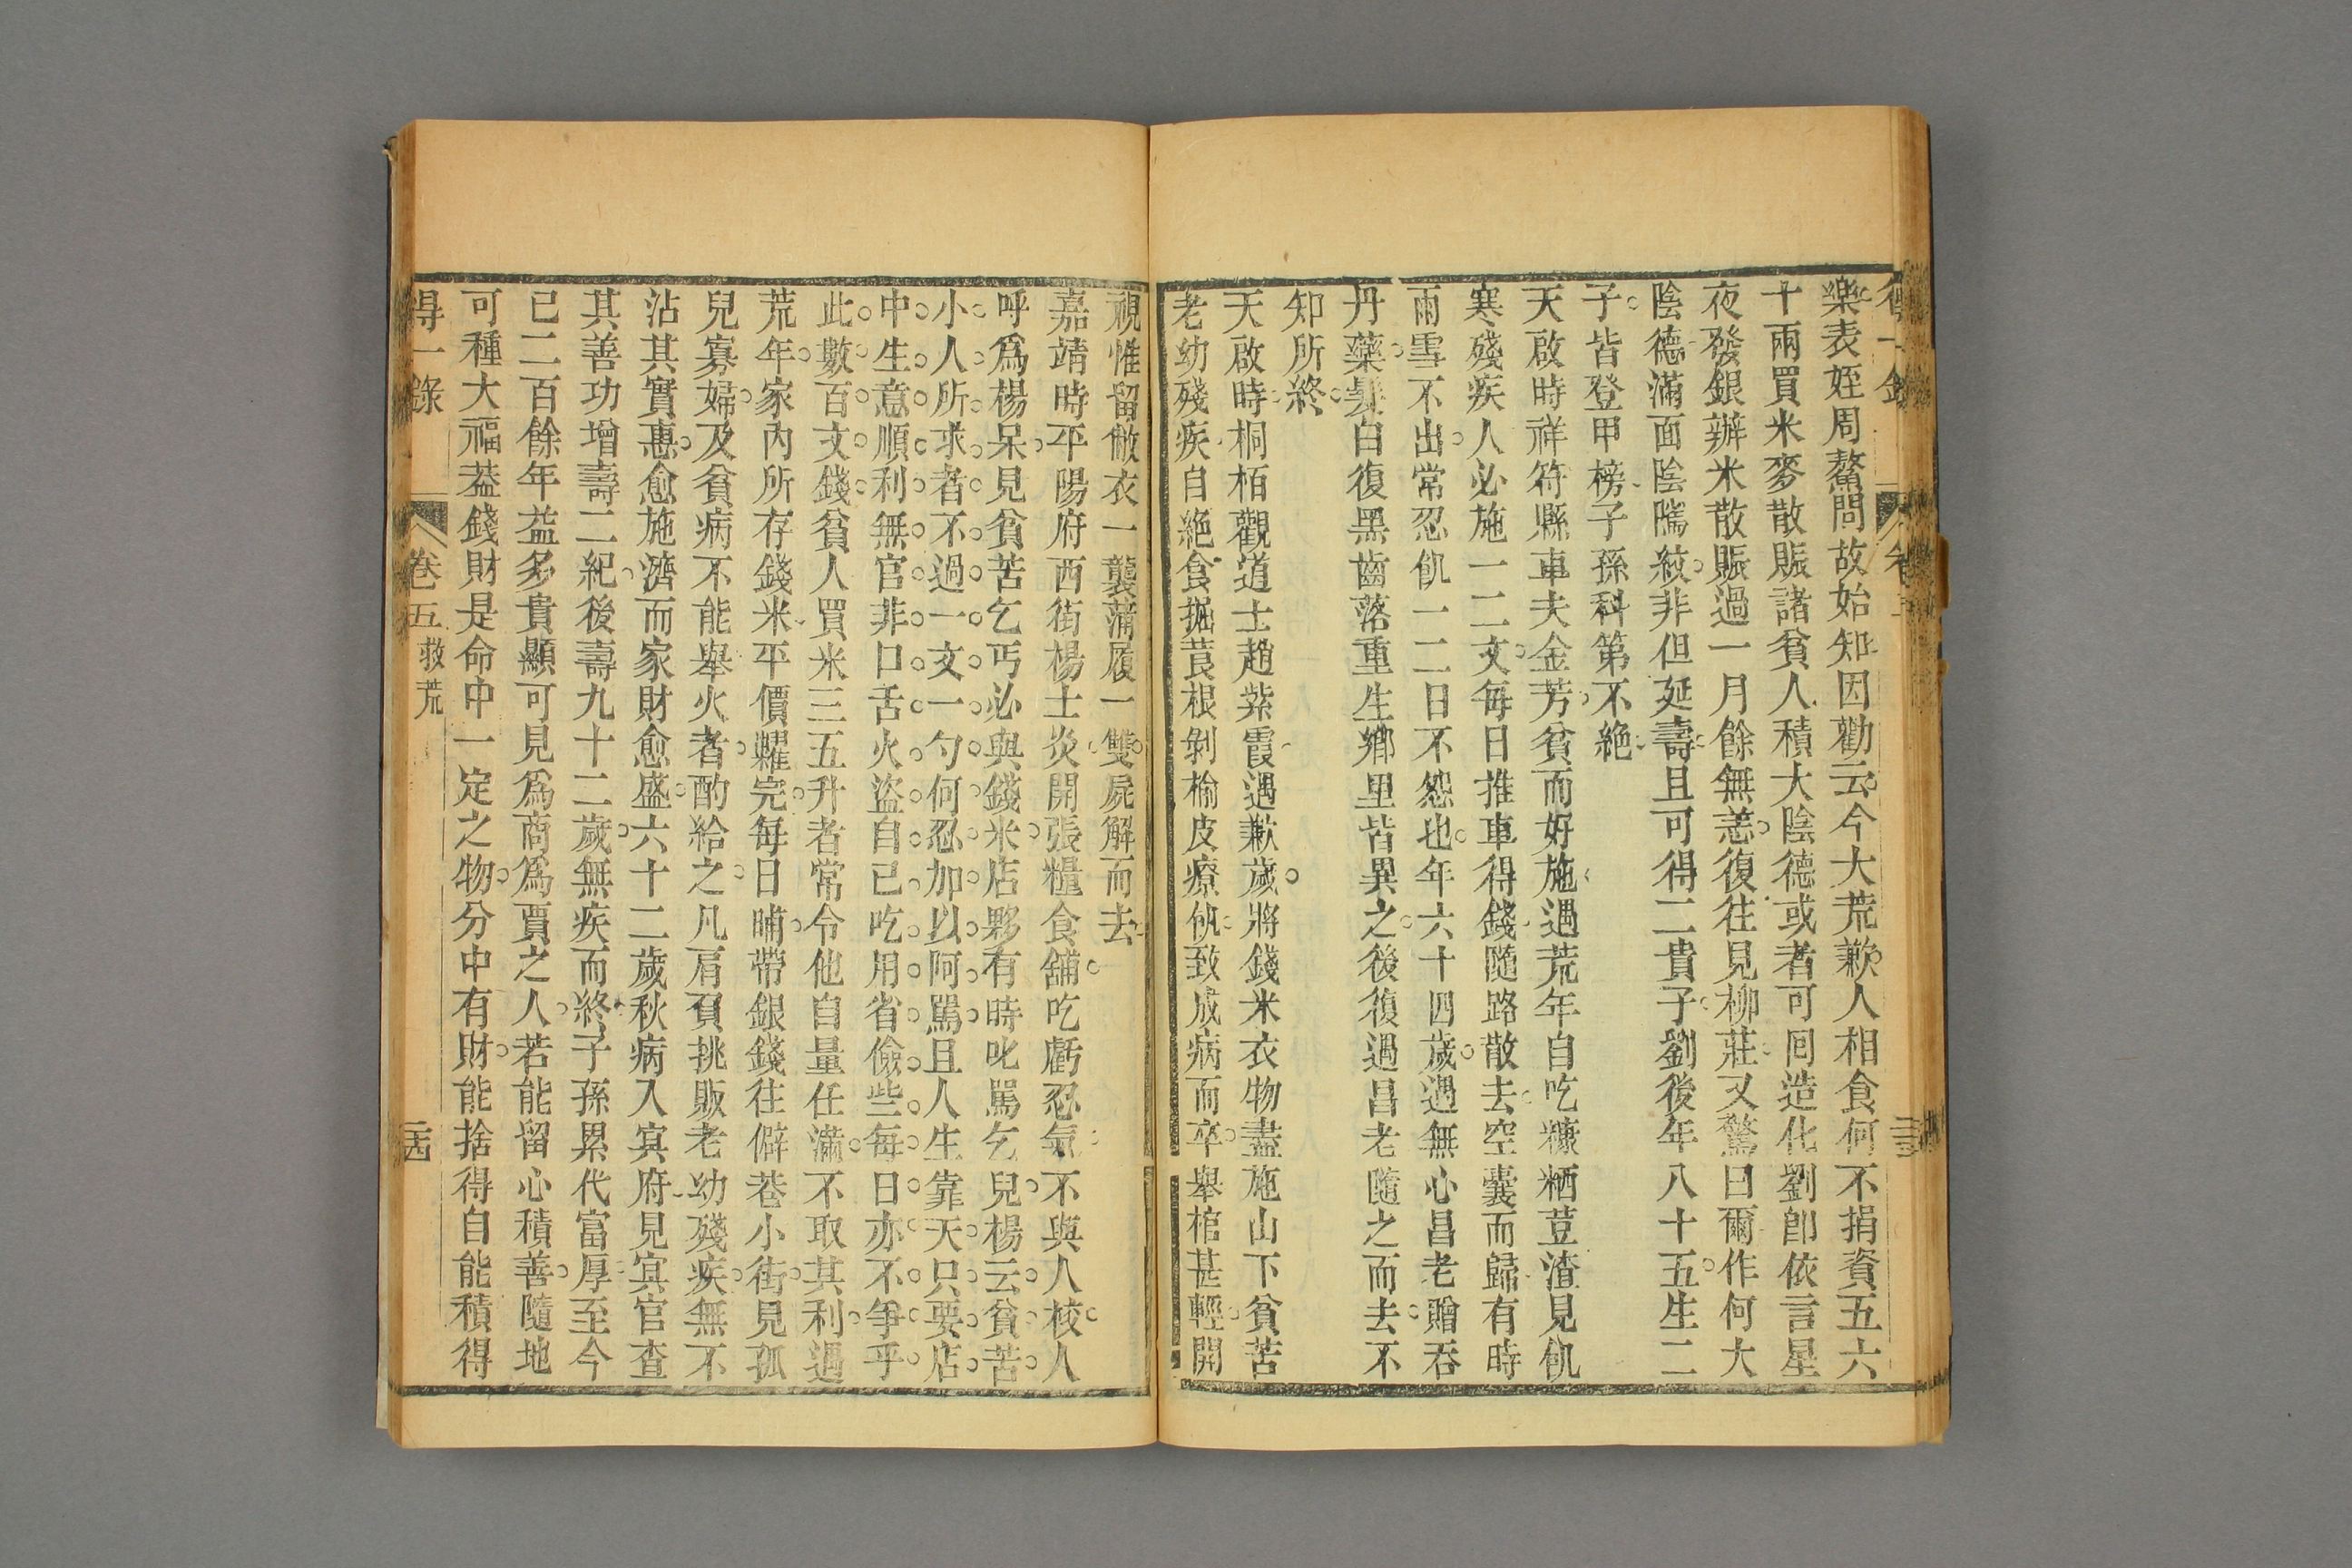 樂表姪周鰲問故始知因勸云今大荒歉人相食何不捐資五六
十兩買米麥散賑諸貧人積大陰德或者可回造化劉卽依言星
夜發銀辦米散賑過一月餘無恙復往見柳莊又驚曰爾作何大
陰德滿面陰隲紋非但延壽且可得二貴子劉後年八十五生二
子皆登甲榜子孫科第不絶
天啟時祥符縣車夫金芳貧而好施遇荒年自吃糠粞荳渣見飢
寒殘疾人必施一二文每日推車得錢隨路散去空囊而歸有時
雨雪不出常忍飢一二日不怨也年六十四歲遇無心昌老贈吞
丹藥髮白復黑齒落重生鄉里皆異之後復過昌老隨之而去不
知所終
天啟時桐栢觀道士趙紫霞遇歉歲將錢米衣物盡施山下貧苦
老幼殘疾自絶食掘莨根剝榆皮療飢致成病而卒舉棺甚輕開
視惟留僘衣一襲蒲履一雙屍解而去
嘉靖時平陽府西街楊士炎開張糧食舖吃虧忍氣不與人校人
呼爲楊呆見貧苦乞丐必與錢米店夥有時叱罵乞兒楊云貧苦
小人所求者不過一文一勺何忍加以阿罵且人生靠天只要店
中生意順利無官非口舌火盜自已吃用省儉些每日亦不爭乎
此數百文錢貧人買米三五升者常令他自量任滿不取其利遇
荒年家內所存錢米平價糶完每日晡帶銀錢往僻巷小街見孤
兒寡婦及貧病不能舉火者酌給之凡肩負挑販老幼殘疾無不
沾其實惠愈施濟而家財愈盛六十二歲秋病入㝠府見㝠官查
其善功增壽二紀後壽九十二歲無疾而終子孫累代富厚至今
已二百餘年益多貴顯可見爲商爲賈之人若能留心積善隨地
可種大福葢錢財是命中一定之物分中有財能捨得自能積得
得一錄 卷五 救荒 二十四